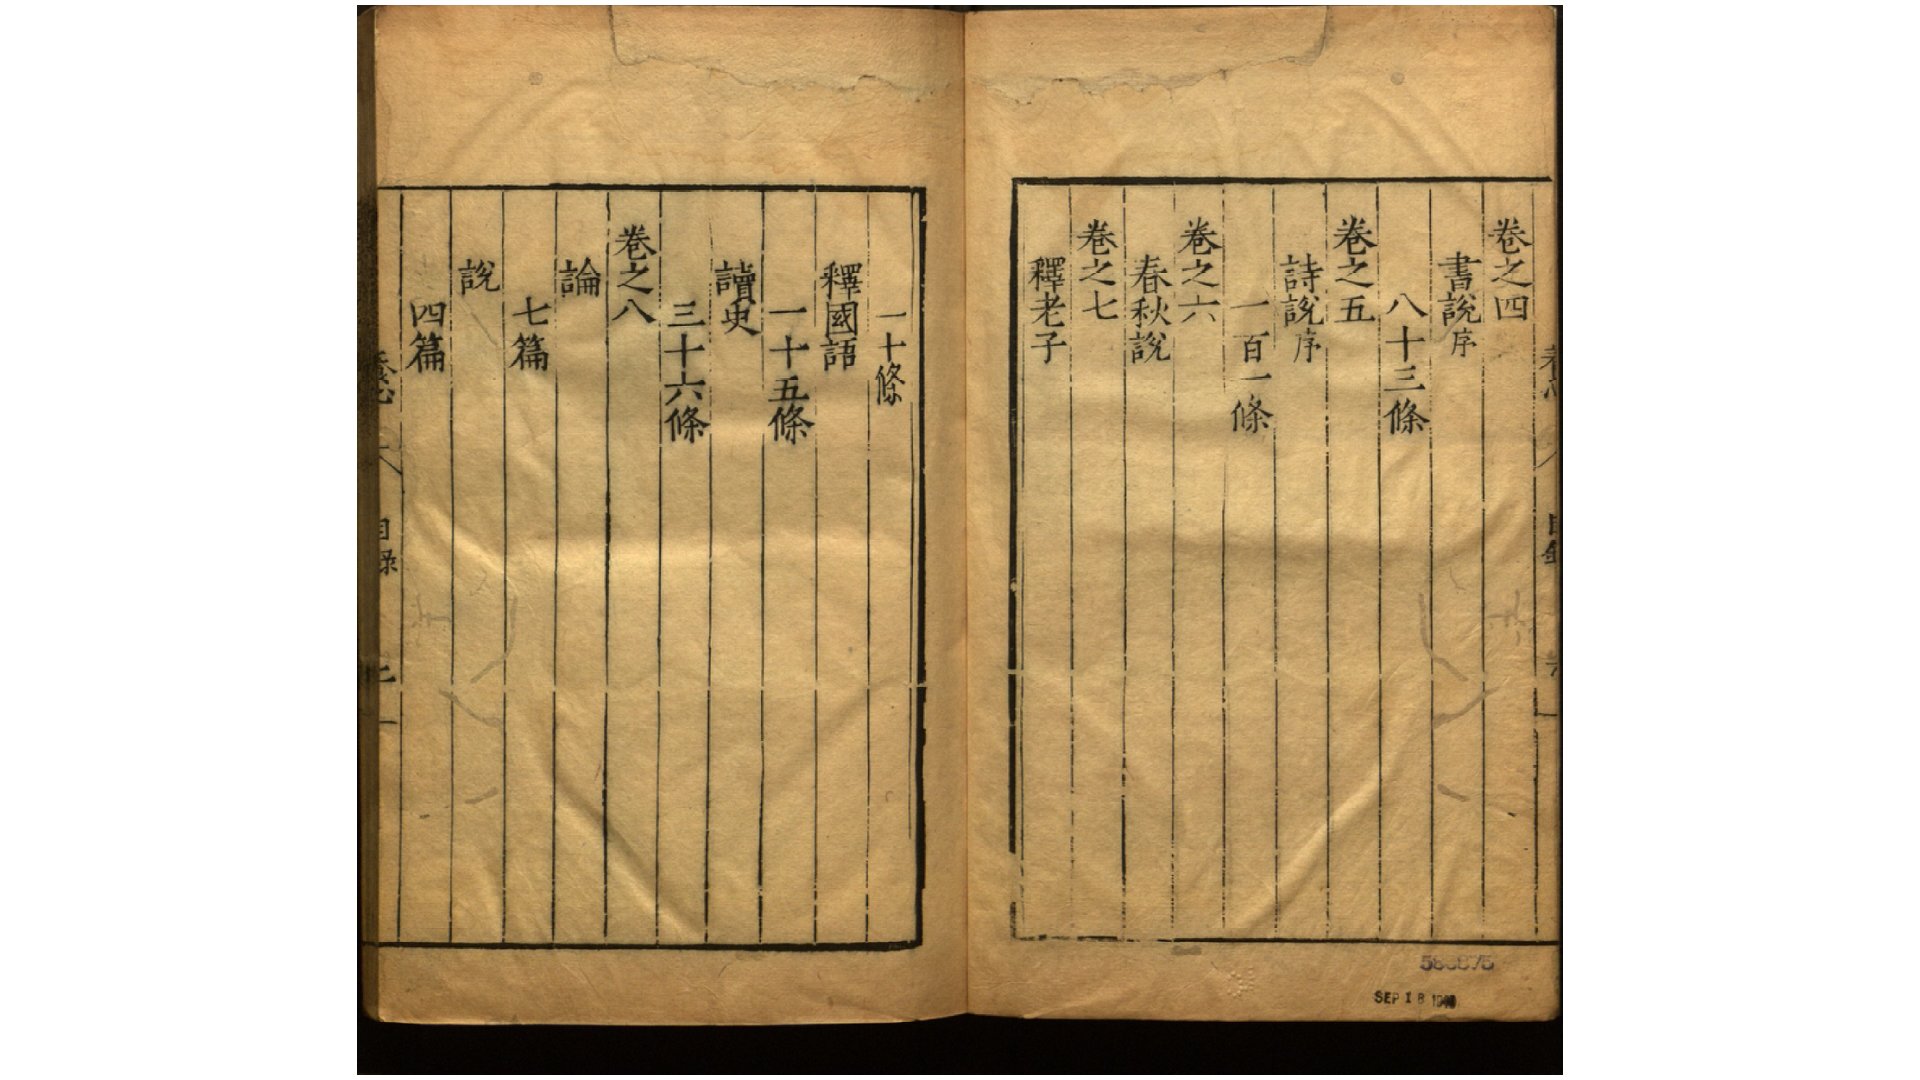 卷之四
書說序
八十三條
卷之五
詩說序
一百一條
卷之六
春秋說
卷之七
釋老子
一十條
釋國語
一十五條
讀史
三十六條
卷之八
論
七篇
說
四篇
目錄
SEP 18